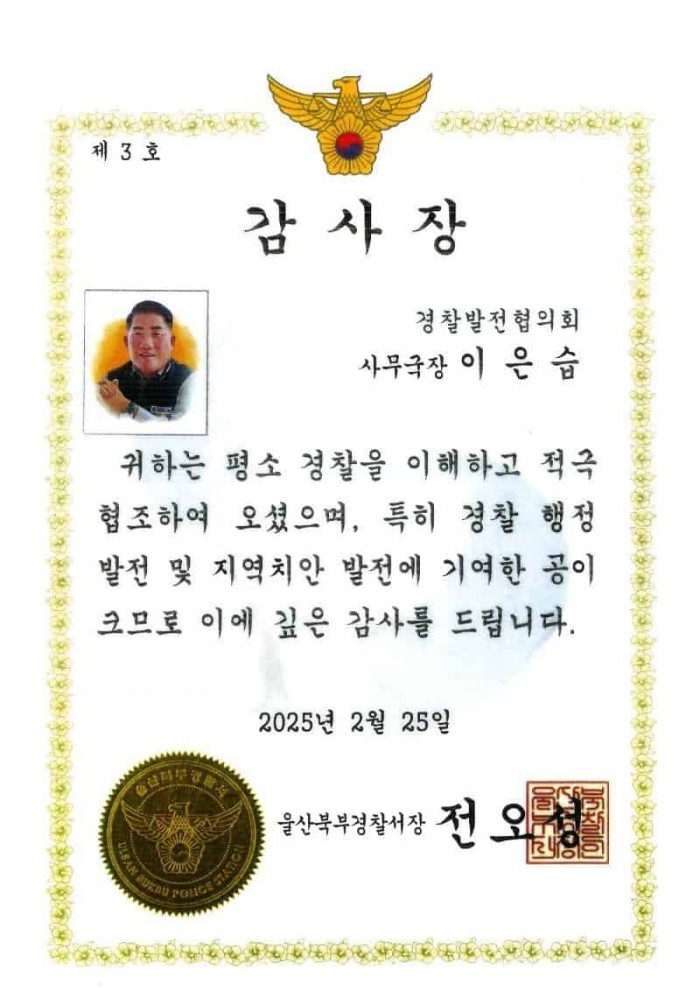 제 3 호
감 사 장
경찰발전협의회
사무국장 이 은 습
귀하는 평소 경찰을 이해하고 적극
협조하여 오셨으며, 특히 경찰 행정
발전 및 지역치안 발전에 기여한 공이
크므로 이에 깊은 감사를 드립니다.
2025년 2월 25일
울산북부경찰서
ULSAN BUKBU POLICE STATION
울산북부경찰서장 전 오 성